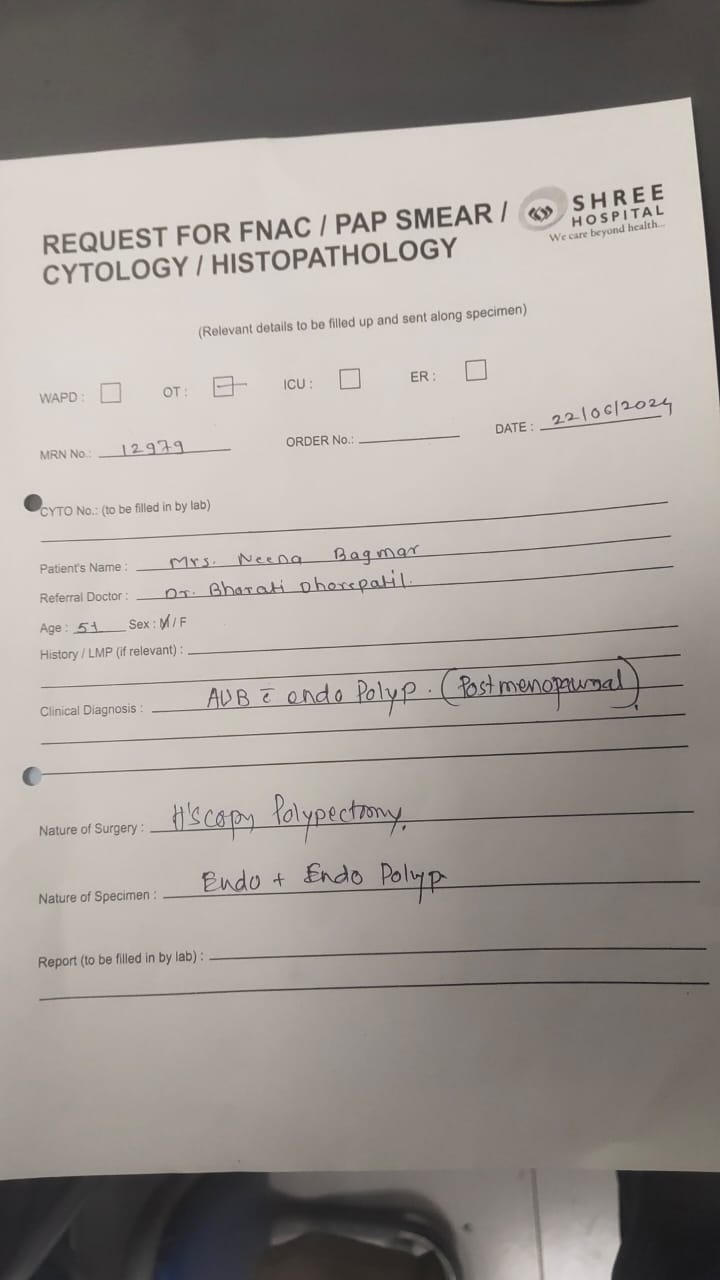 REQUEST FOR FNAC / PAP SMEAR /
CYTOLOGY / HISTOPATHOLOGY
SHREE
HOSPITAL
We care beyond health...
(Relevant details to be filled up and sent along specimen)
WAPD : OT : ICU : ER :
MRN No.: 12979 ORDER No.: DATE : 22/06/2024
CYTO No.: (to be filled in by lab)
Patient's Name : Mrs. Neena Bagmar
Referral Doctor : Dr. Bharati Dhorepatil.
Age : 51 Sex : M / F
History / LMP (if relevant) :
Clinical Diagnosis : AUB c̄ endo Polyp. (Postmenopausal).
Nature of Surgery : H'scopy Polypectomy.
Nature of Specimen : Endo + Endo Polyp
Report (to be filled in by lab) :